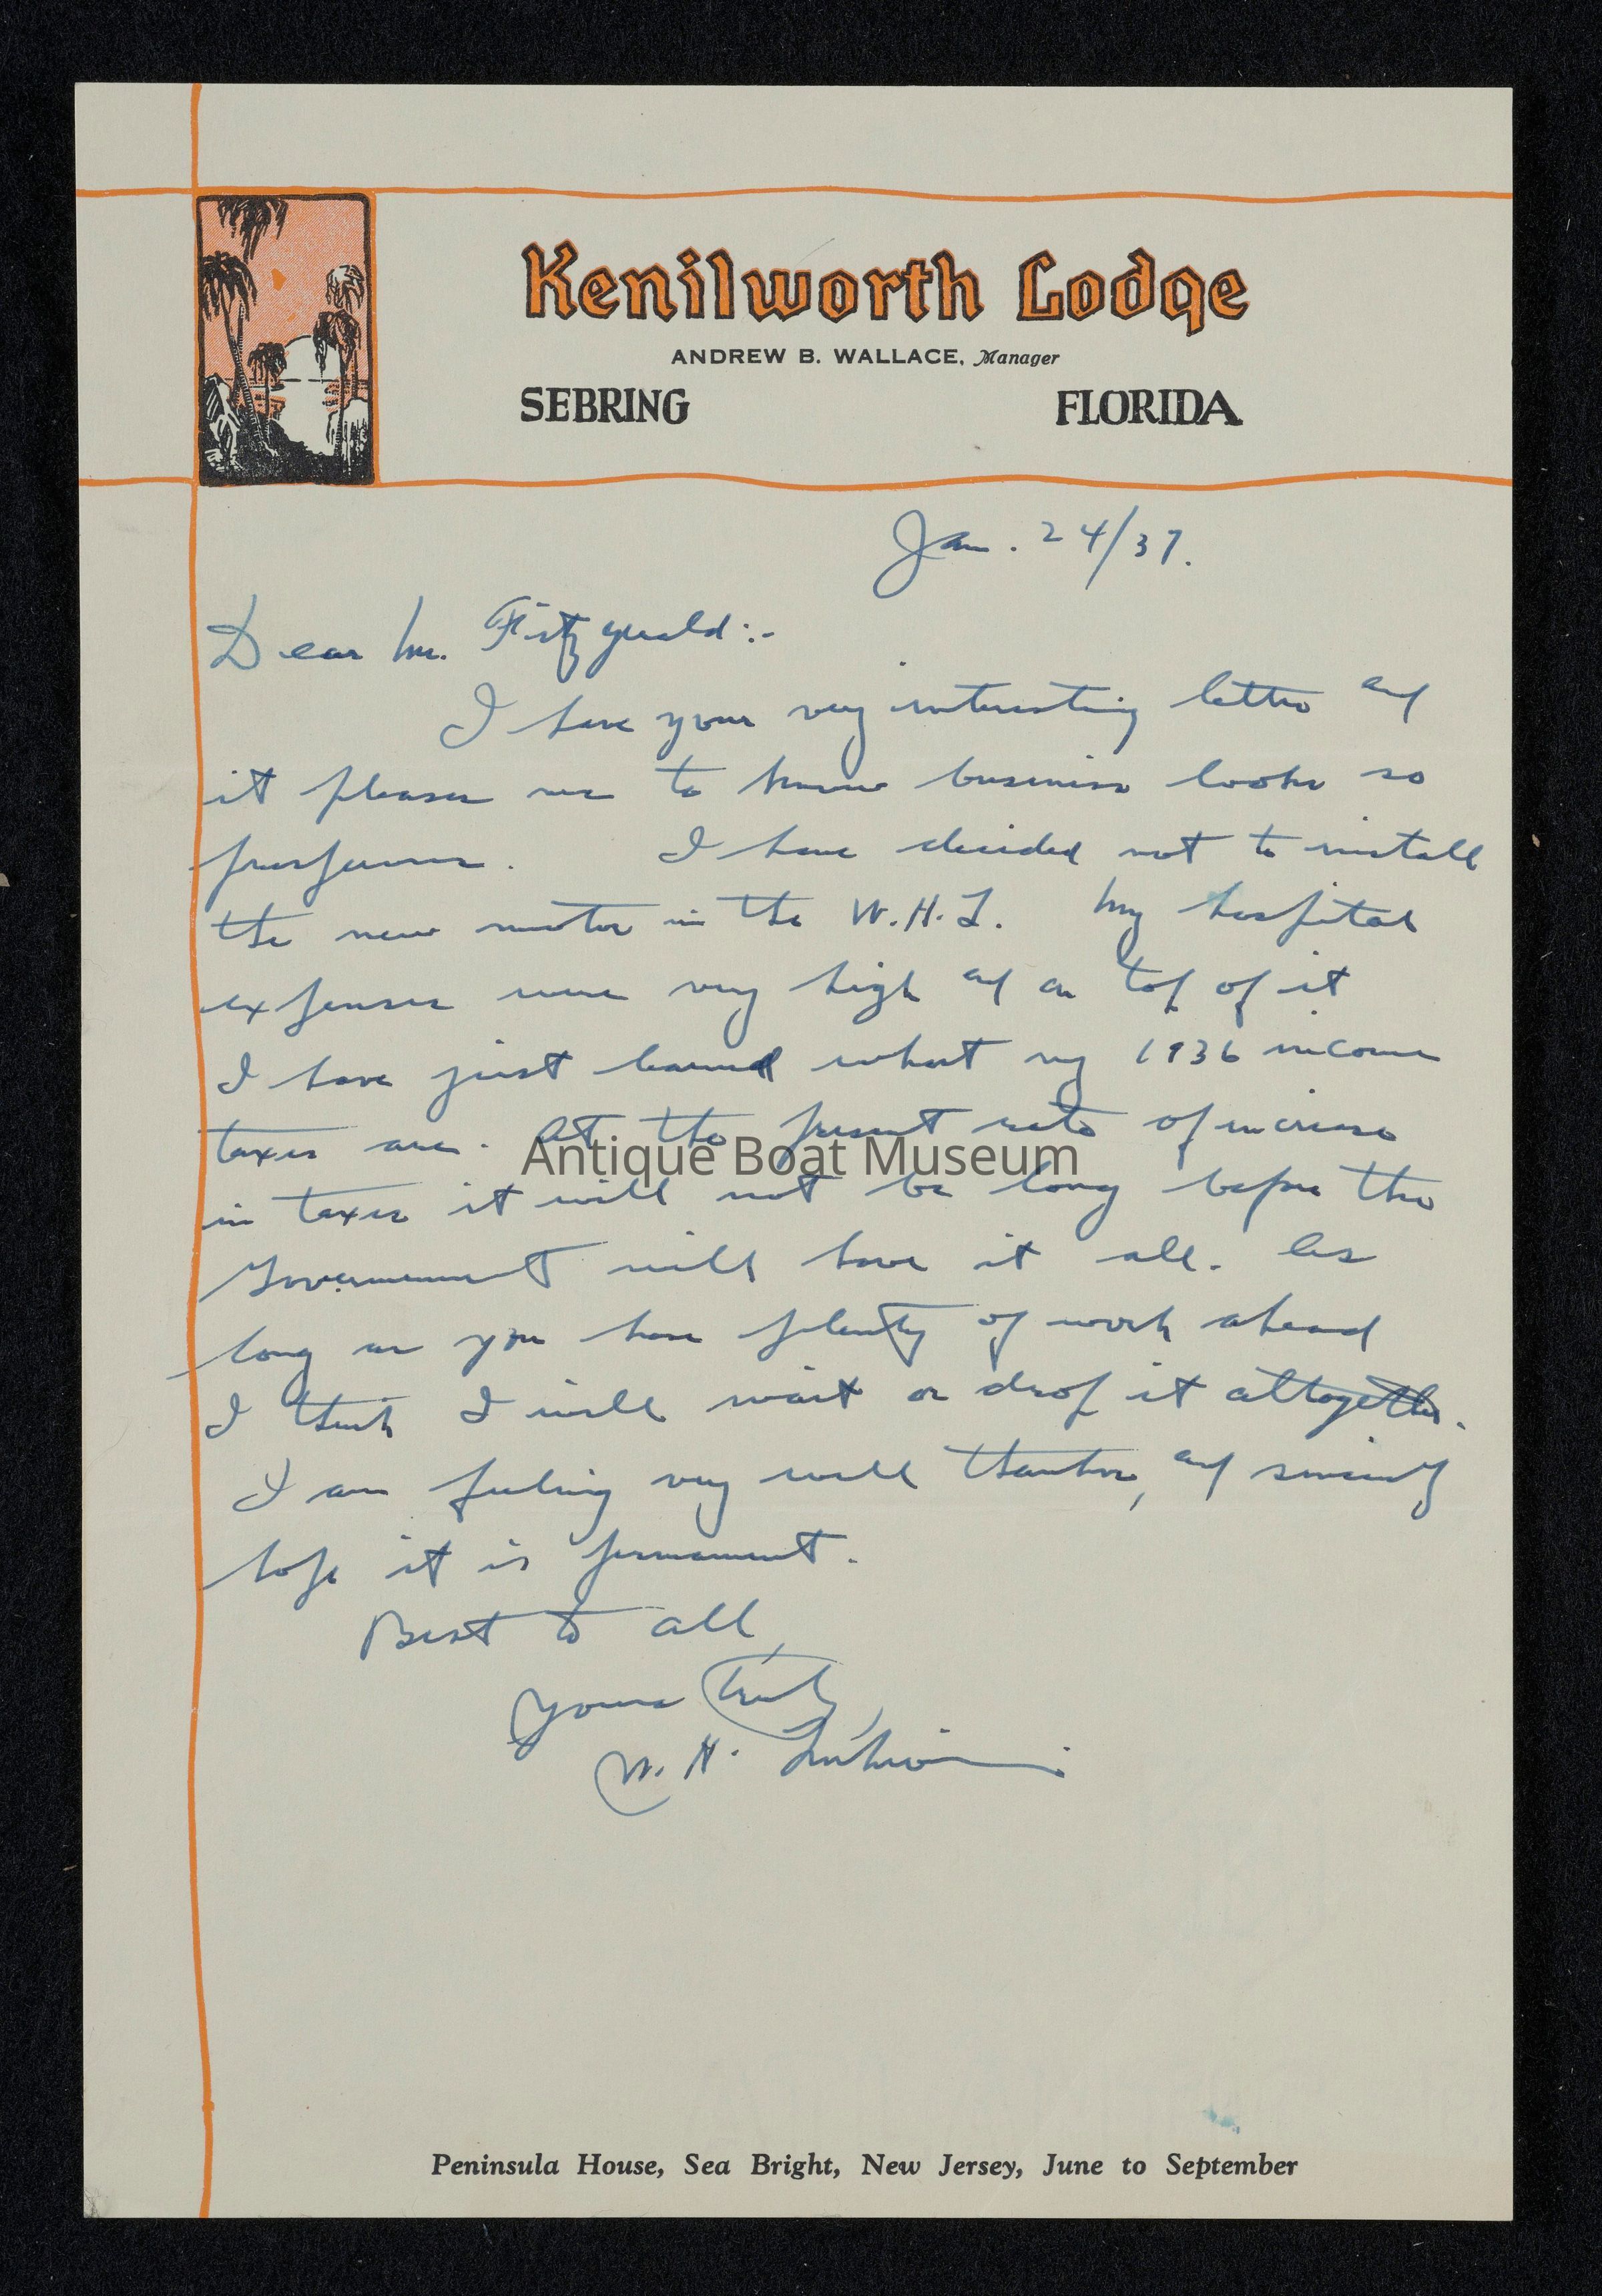 Kenilworth Lodge
ANDREW B. WALLACE, Manager
SEBRING FLORIDA
Jan. 24/37.
Dear Mr. Fitzgerald:-
I have your very interesting letter and
it pleases me to know business looks so
prosperous. I have decided not to install
the new motor in the W.H.L. My hospital
expenses were very high and on top of it
I have just learned what my 1936 income
taxes are. At the present rate of increase
in taxes it will not be long before the
Government will have it all. As
long as you have plenty of work ahead
I think I will wait or drop it altogether.
I am feeling very well thanks, and sincerely
hope it is permanent.
Best to all
Yours truly,
W. H.
Antique Boat Museum
Peninsula House, Sea Bright, New Jersey, June to September